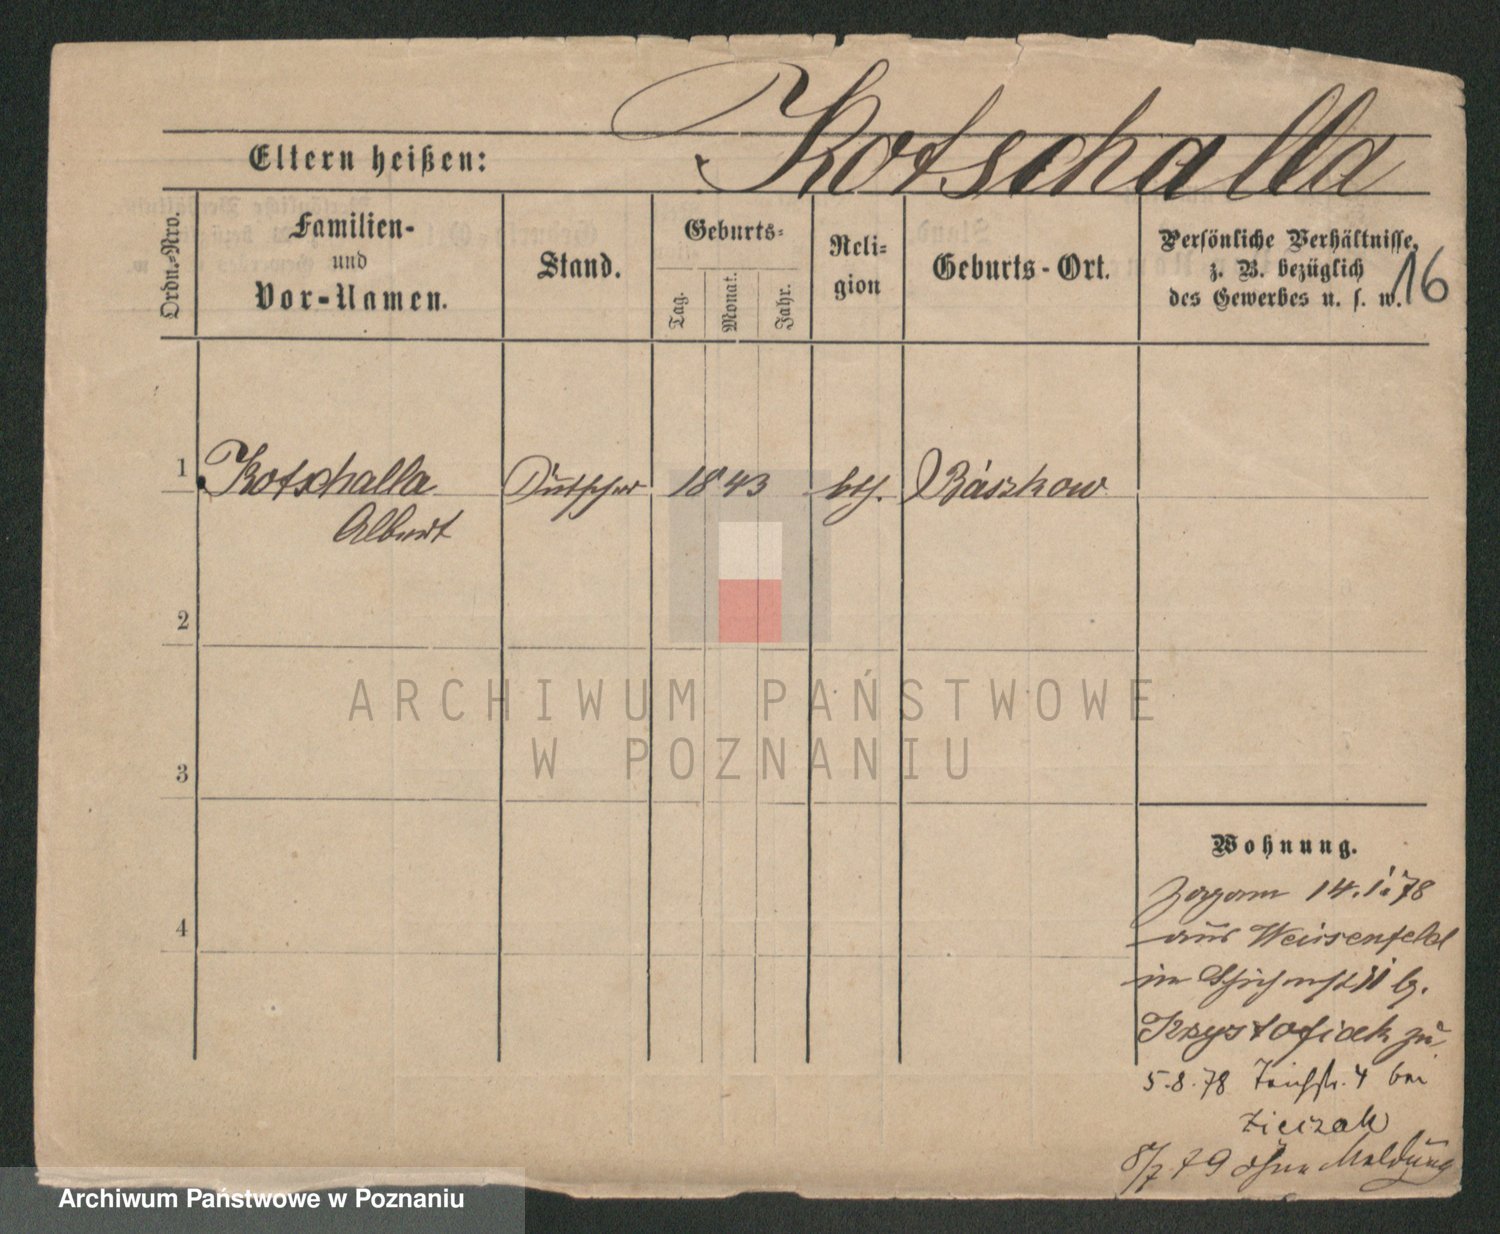 Kotschalla
Eltern heißen:
Ordn.-Nro.
Familien-
und
Vor-Namen.
Stand.
Geburts-
Tag.
Monat.
Jahr.
Reli-
gion
Geburts-Ort.
Persönliche Verhältnisse,
z. B. bezüglich
des Gewerbes u. s. w.
16
1
Kotschalla 1843 kth. Baszkow
Albert
2
ARCHIWUM PAŃSTWOWE
W POZNANIU
3
4
Wohnung.
Zogam 14.1.78
aus Weissenfeld
in 11 bg.
Krystofiak zu
5.8.78 Teichstr. 4 bei
Zieizak
8/7 79 ohne Meldung
Archiwum Państwowe w Poznaniu